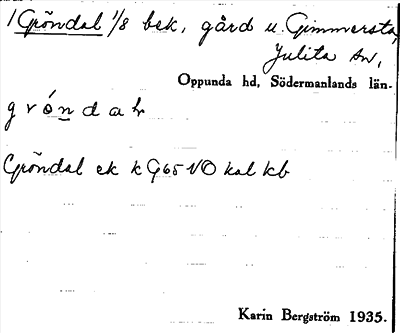 1 Gröndal 1/8 bsk, gård u. Gimmersta,
Julita sn,
Oppunda hd, Södermanlands län.
g r ó n d a l
Gröndal ek k G65 NO kal kb
Karin Bergström 1935.